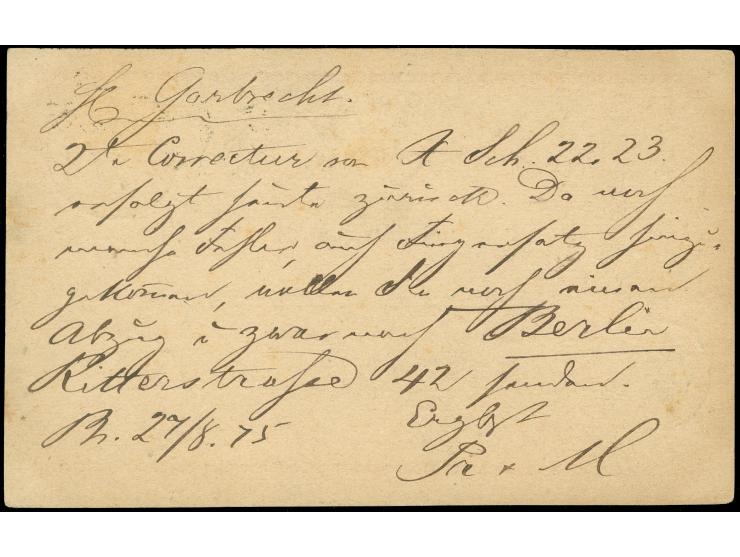 H Garbrecht.
2te Correctur von X Sch. 22. 23.
erfolgt heute zurück. Da noch
manche Fehler, auch Fingersatz hinzu=
gekommen, wollen Sie noch einen
Abzug u zwar nach Berlin
Ritterstrasse 42 senden.
Ergbst
27/8. 75 Pr + M